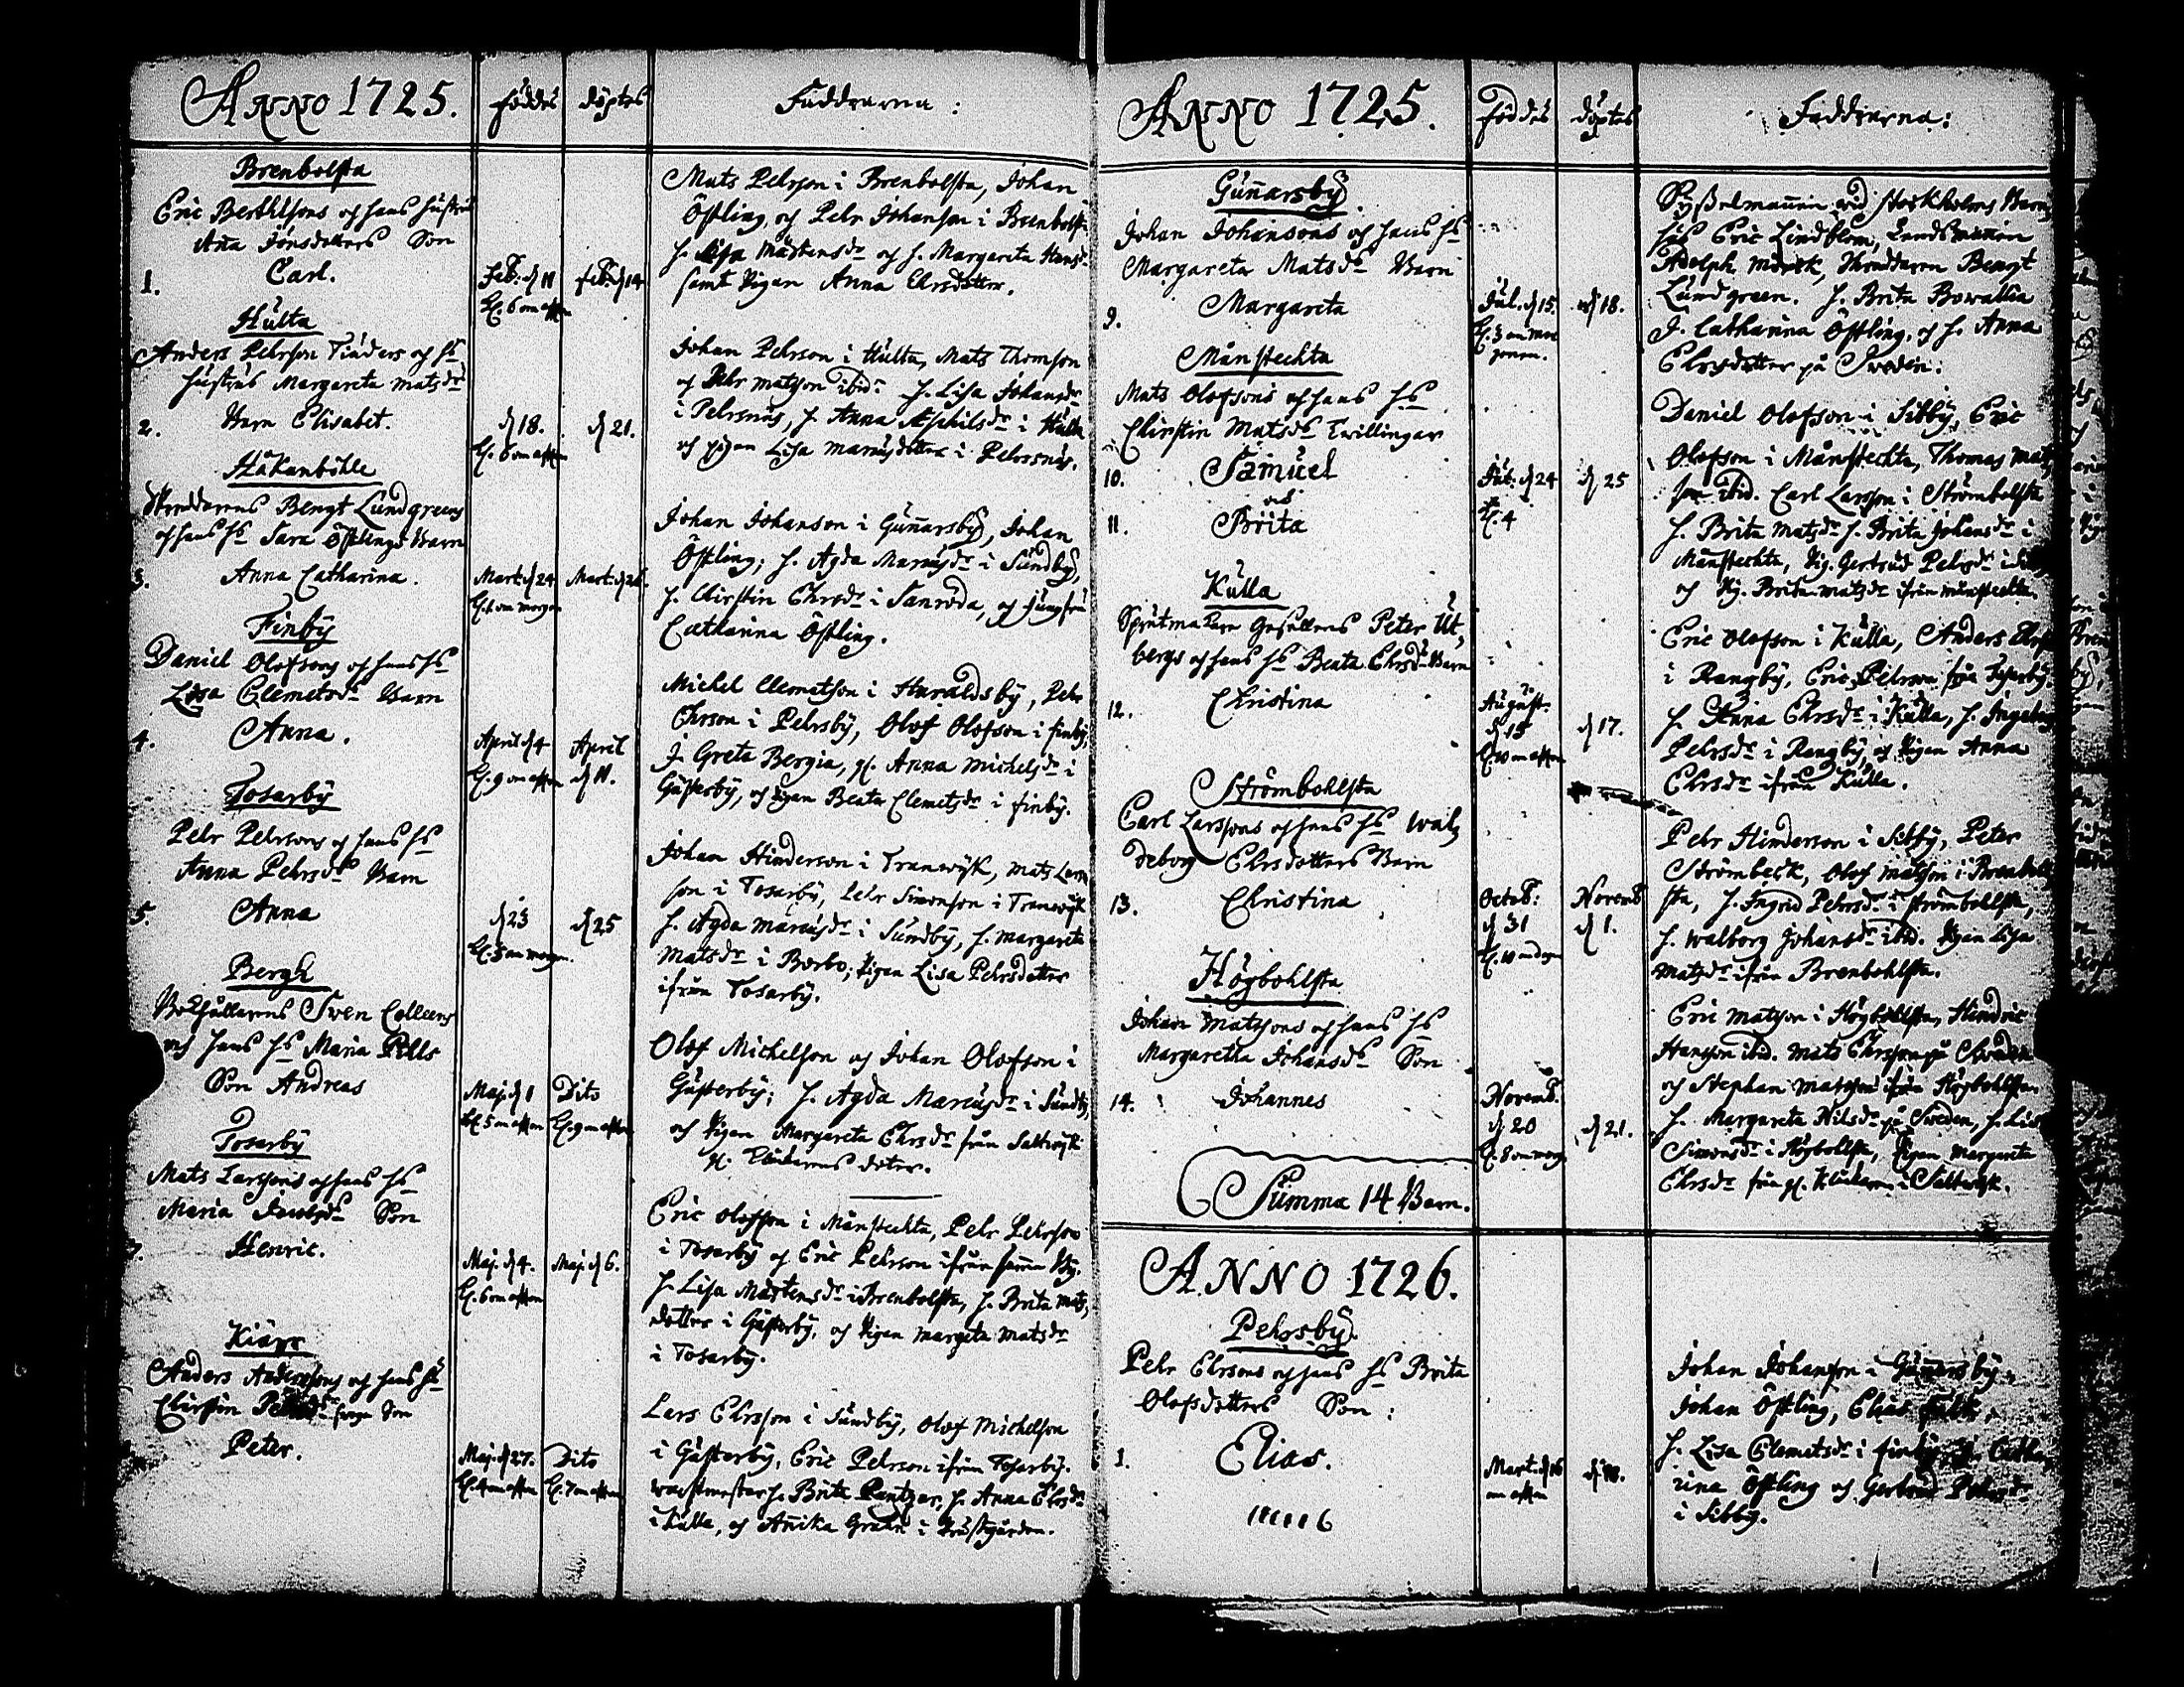 ANNO 1725. föddes döptes Faddrarna:
Brenbolsta
Eric Berthlsons och hans hustrus
Anna Jönsdotters Son
1. Carl. Feb: d 11 Feb: d 14
Kl. 6 om afton
Mats Pehrson i Brenbolsta, Johan
Östling, och Pehr Johanson i Brenbolsta
h. Lisa Mårtensdr och h. Margareta Hansdr
samt Pigan Anna Ehrsdotter.
Hulta
Anders Pehrson Tinders och hs
hustrus Margareta Matsdr
2. Barn Elisabet. d 18. d 21.
Kl. 6 om afton
Johan Pehrson i Hulta, Mats Thomson
och Pehr Matzon ibid. h. Lisa Johansdr
i Pehrsnäs, h. Anna Æschilsdr i Hulta
och pigan Lisa Marcusdotter i Pehrsnäs.
Håkanböhle
Skreddarens Bengt Lundgreens
och hans hs Sara Östlings Barn
3. Anna Catharina. Mart: d 24 Mart: d 26.
Kl. 1 om morgon
Johan Johanson i Gunnarsby, Johan
Östling; h. Agda Marcusdr i Sundby,
h. Chirstin Ehrsdr i Sanröda, och Jungfru
Catharina Östling.
Finby
Daniel Olofsons och hans hs
Lisa Clemetsdr Barn
4. Anna. April d 4 April
Kl. 9 om afton d 11.
Michel Clemetson i Haraldsby, Pehr
Ehrson i Pehrsby, Olof Olofson i Finby,
J. Greta Bergia, pl. Anna Michelsdr i
Gästerby, och Pigan Beata Clemetsdr i Finby.
Tosarby
Pehr Pehrsons och hans hs
Anna Pehrsdr Barn
5. Anna d 23 d 25
Kl. 3 om morgon.
Johan Hinderson i Tranwijk, Mats Lars
son i Tosarby, Pehr Simonson i Tranwijk
h. Agda Marcusdr i Sundby, h. Margareta
Matsdr i Borbo; Pigan Lisa Pehrsdotter
ifrån Tosarby.
Bergh
Sven Colleens
och hans hs Maria Pells
Son Andreas Maj. d 1 Dito
Kl. 5 om afton Kl. 9 om afton
Olof Michelson och Johan Olofson i
Gästerby; h. Agda Marcusdr i Sundby,
och Pigan Margareta Ehrsdr från Saltwijk
Klåckarens doter.
Tosarby
Mats Larssons och hans hs
Maria Jacobsdr Son
7. Henric. Maj. d 4. Maj. d 6.
Kl. 6 om afton
Eric Olofson i Månstechta, Pehr Pehrson
i Tosarby och Eric Pehrson ifrån samma By.
h. Lisa Mårtensdr i Brenbolsta, h. Brita Mats,
dotter i Gästerby, och Pigan Margeta Matsdr
i Tosarby.
Kiärr
Anders Anderssons och hans hs
Chirstin Son
Peter. Maj. d 27. Dito
Kl. 4 om afton Kl. 7 om afton
Lars Ehrsson i Sundby, Olof Michelson
i Gästerby, Eric Pehrson ifrån Tosarby.
h. Brita Pantzar, h. Anna Ehrsdr
i Kulla, och Annika i Prästgården.
ANNO 1725. föddes döptes Faddrarna:
Gunnarsby
Johan Johansons och hans hs
Margareta Matsdr Barn
9. Margareta Jul. d 15. d 18.
Kl. 3 om mor
gonen.
wid Stockholms
Eric Lindblom, Lendsmannen
Adolph Mörck, Skreddaren Bengt
Lundgreen. h. Brita Bowallia
J. Catharina Östling, och h. Anna
Ehrsdotter på Sweden:
Månstechta
Mats Olofsons och hans hs
Chirstin Matsdr Twillingar
10. Samuel Jul: d 24 d 25
och
11. Brita Kl. 4
Daniel Olofson i Sibby, Eric
Olofson i Månstechta, Thomas Mats
son ibid. Carl Larsson i Strömbolsta
h. Brita Matsdr h. Brita Johansdr i
Månstechta, Pig. Gertrud Pehrsdr
och Pig. Brita Matsdr ifrån Månstechta.
Kulla
Gesällens Peter Ut,
bergs och hans hs Beata Ehrsdr Barn
12. Christina August.
d 15 d 17.
Kl. 10 om afton
Eric Olofson i Kulla, Anders
i Rangby, Eric Pehrson från Tosarby.
h. Anna Ehrsdr i Kulla, h. Ingeborg
Pehrsdr i Rangby, och Pigan Anna
Ehrsdr ifrån Kulla.
Strömbohlsta
Carl Larssons och hans hs Wal,
debor Ehrsdotters Barn
13. Christina Octob: Novemb
d 31 d 1.
Pehr Hinderson i Sibby, Peter
Strömbeck, Olof Matson i Brenbohl
sta, h. Ingrid Pehrsdr i Strömbohlsta,
h. Walborg Johansdr ibid. Pigan Lisa
Matsdr ifrån Brenbohlsta.
Högbohlsta
Johan Matssons och hans hs
Margaretha Johansdr Son
14. Johannes Novemb.
d 20 d 21.
Kl. 8 om morg.
Eric Matzon i Högbohlsta, Hindric
Hanson ibid. Mats Ehrsson på
och Stephan Matzson ifrån Högbohlsta.
h. Margareta Nilsdr på Sweden, h. Lisa
Simonsdr i Högbollsta, Pigan Margareta
Ehrsdr från Klåckaren i Saltwijk.
Summa 14 Barn.
ANNO 1726.
Pehrsby.
Pehr Ehrsons och hans hs Brita
Olofsdotters Son:
1. Elias. Mart. d 16 d 18.
om afton
Johan Johanson i Gunnarsby,
Johan Östling, Elias
h. Lisa Clemetsdr i Finby, Catha
rina Östling och Gertrud Pehrsdr
i Sibby.